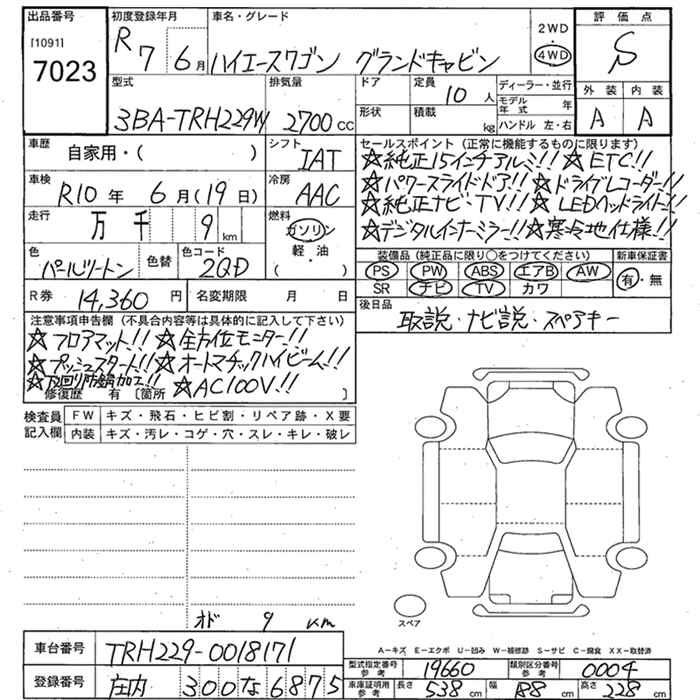 出品番号 初度登録年月 車名・グレード 2WD 4WD 評価点
[1091] R 7 6月 ハイエースワゴン グランドキャビン S
7023
型式 排気量 ドア 定員 10人 ディーラー・並行 外装 内装
3BA-TRH229W 2700cc 形状 積載 kg モデル年式 年 A A
ハンドル 左・右
車歴 自家用・( ) シフト IAT セールスポイント(正常に機能するものに限ります)
☆純正15インチアルミ!! ☆ETC!!
車検 R10年 6月(19日) 冷房 AAC ☆パワースライドドア!! ☆ドライブレコーダー!!
☆純正ナビ・TV!! ☆LEDヘッドライト!!
走行 万 千 9km 燃料 ガソリン ☆デジタルインナーミラー!! ☆寒冷地仕様!!
軽・油
( )
色 パールツートン 色替 色コード 2QD 装備品(純正品に限り〇をつけてください) 新車保証書
PS PW ABS エアB AW 有・無
SR ナビ TV カワ
R券 14,360円 名変期限 月 日 後日品
取説・ナビ説・スペアキー
注意事項申告欄(不具合内容等は具体的に記入して下さい)
☆フロアマット!! ☆全方位モニター!!
☆プッシュスタート!! ☆オートマチックハイビーム!!
☆下回り防錆加工!! ☆AC100V!!
修復歴 有 [箇所 ]
検査員記入欄 FW キズ・飛石・ヒビ割・リペア跡・X要
内装 キズ・汚レ・コゲ・穴・スレ・キレ・破レ
オド 9 km
スペア
A-キズ E-エクボ U-凹み W-補修跡 S-サビ C-腐食 XX-取替済
車台番号 TRH229-0018171 型式指定番号 参考 19660 類別区分番号 参考 0004
登録番号 庄内 300 な 6875 車庫証明用 参考 長さ 538cm 幅 188cm 高さ 228cm